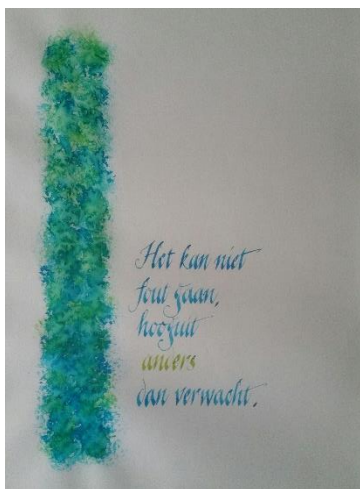 Het kan niet
fout gaan,
hooguit
anders
dan verwacht.